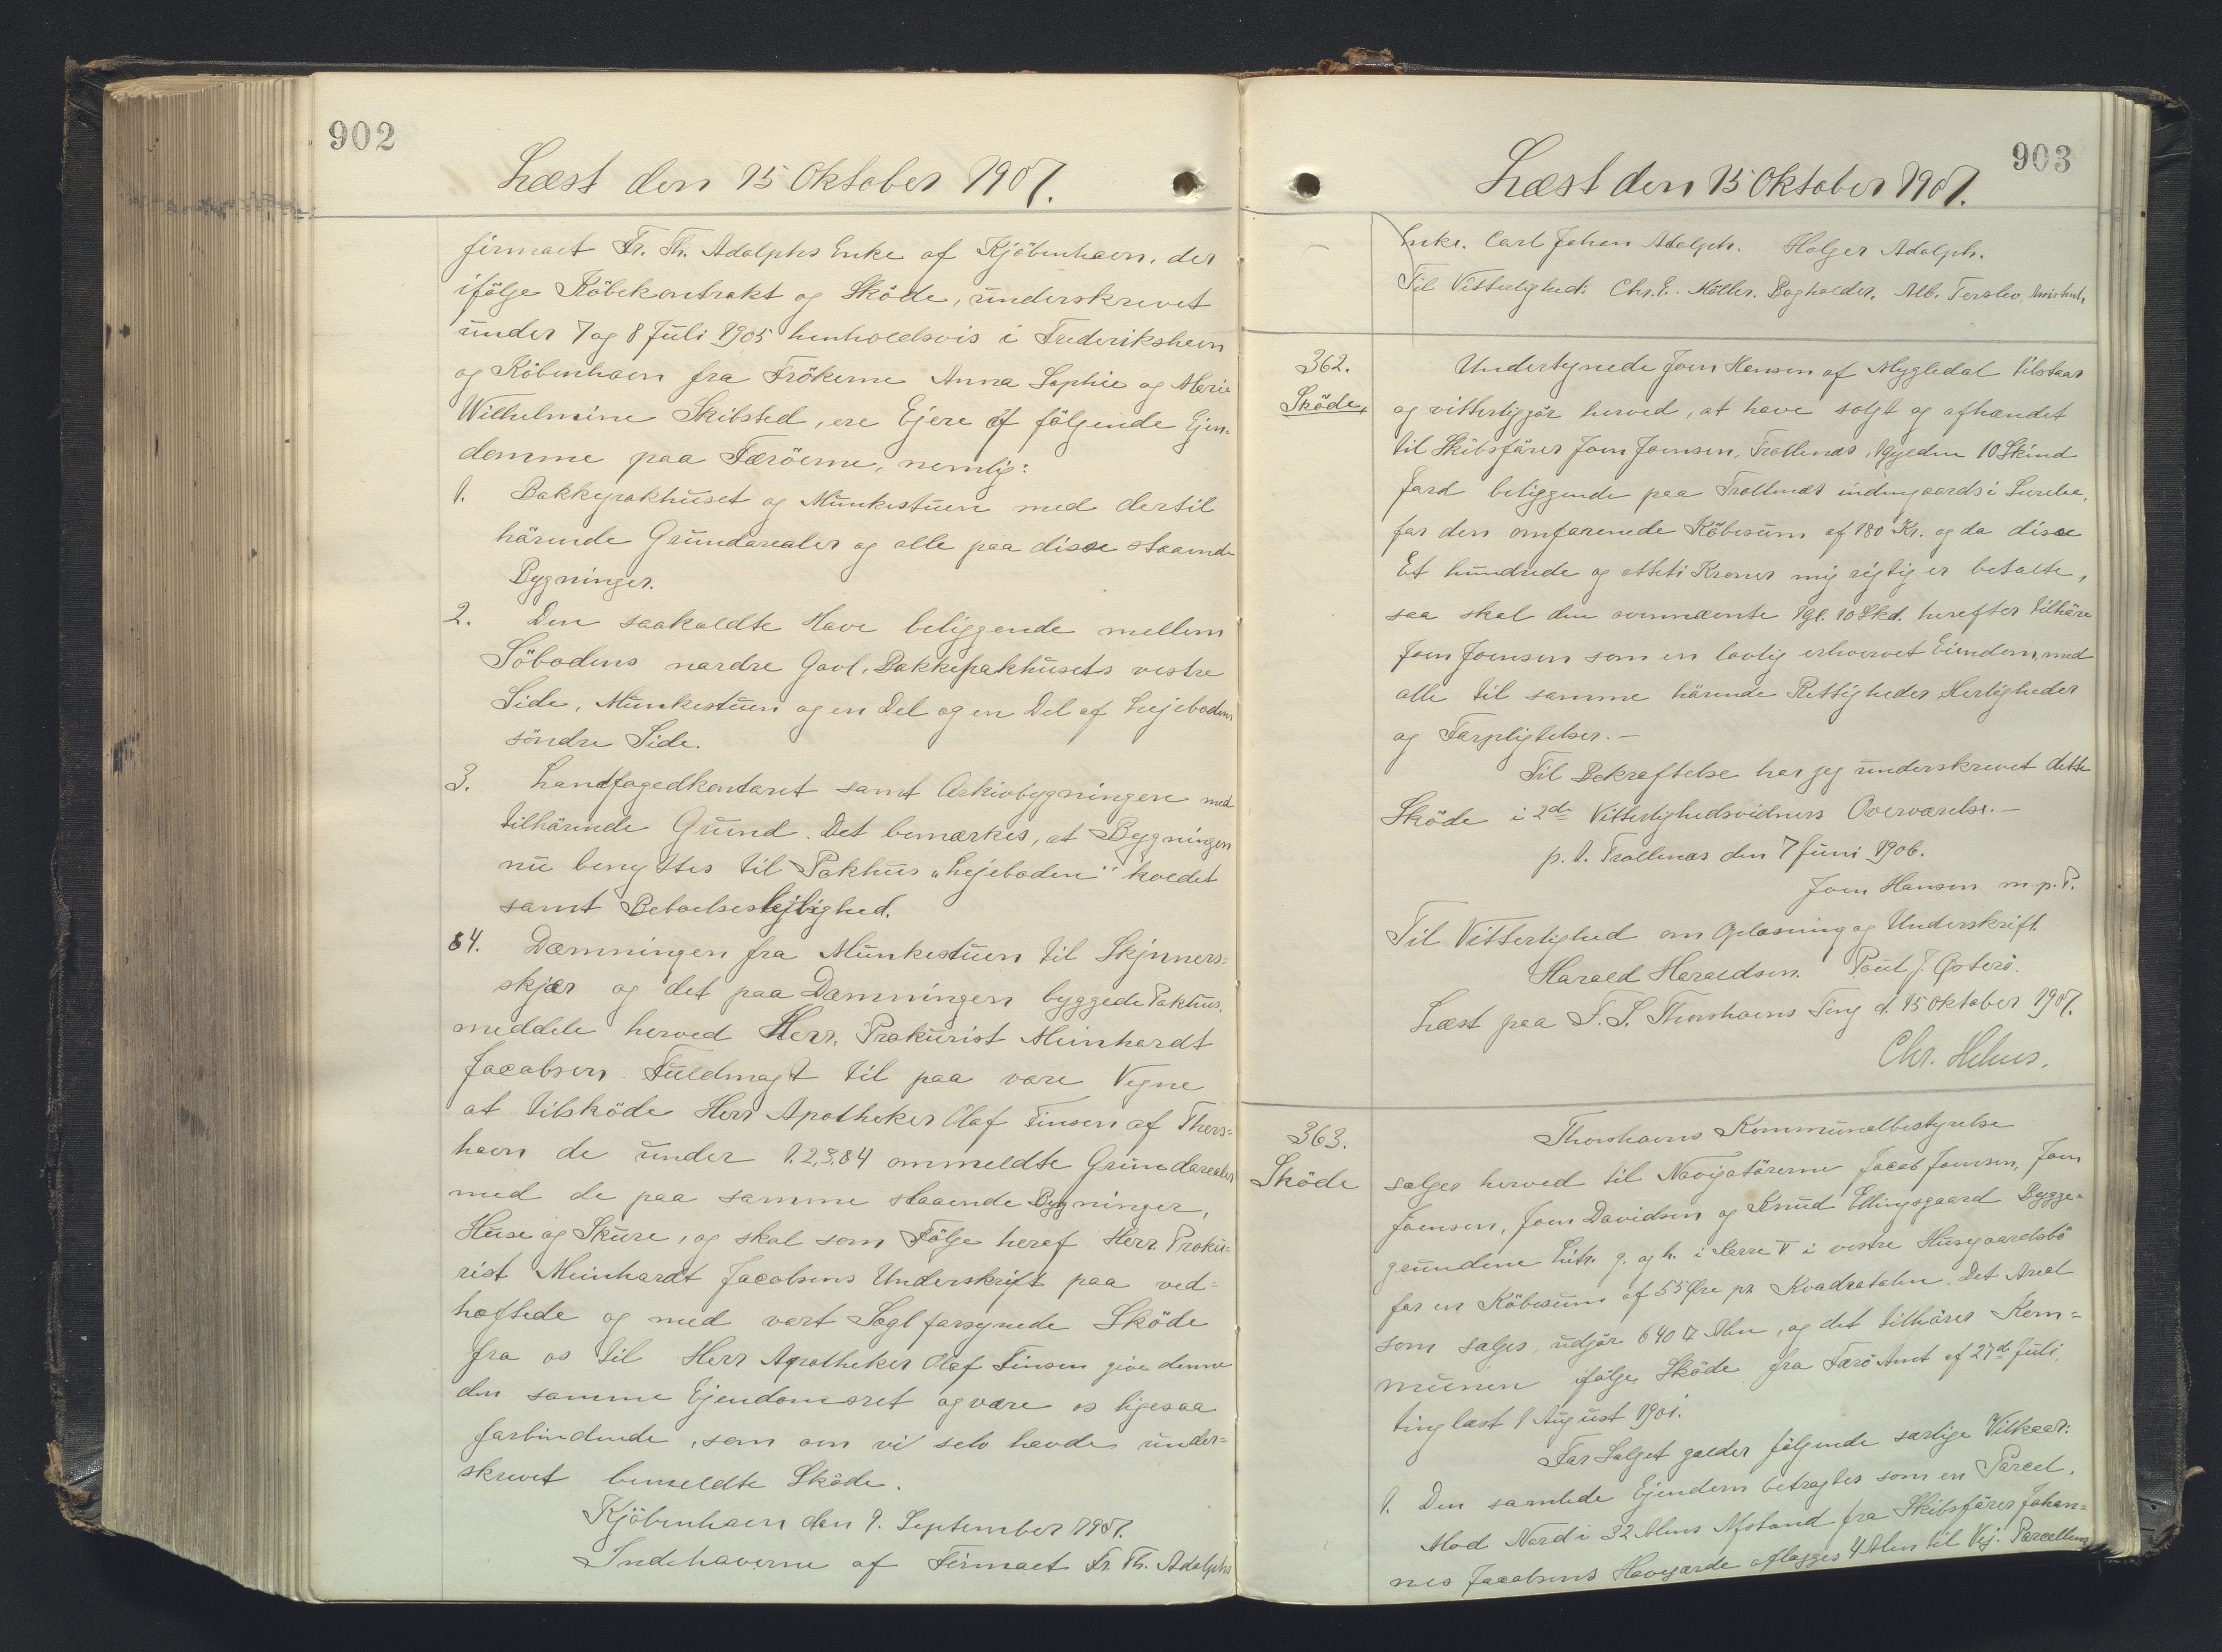 902
Læst den 15 Oktober 1907.
firmaet Fr. Th. Adolphs Enke af Kjöbenhavn, der
ifölge Köbekontrakt og Sköde, underskrevet
under 7 og 8 Juli 1905 henholdsvis i Frederikshavn
og Köbenhavn fra Frökerne Anna Sophie og Marie
Wilhelmine Skibsted, ere Ejere af fölgende Ejen-
domme paa Færöerne, nemlig:
1. Bakkepakhuset og Munkestuen med dertil
hörende Grundarealer og alle paa disse staaende
Bygninger.
2. Den saakaldte Have beliggende mellem
Söbodens nordre Gavl, Bakkepakhusets vestre
Side, Munkestuen og en Del og en Del af Lejebodens
söndre Side.
3. Landfogedkontoret samt Arkivbygningen med
tilhörende Grund. Det bemærkes, at Bygningen
nu benyttes til Pakhus "Lejeboden" kaldet
samt Beboelseslejlighed.
84. Dæmningen fra Munkestuen til Skjnners-
skjær og det paa Dæmningen byggede Pakhus,
meddele herved Herr. Prokurist Meinhardt
Jacobsen Fuldmagt til paa vore Vegne
at tilsköde Herr Apotheker Olaf Finsen af Thors-
havn de under 1.2.3.84 ommeldte Grundarealer
med de paa samme staaende Bygninger,
Huse og Skure, og skal som Fölge heraf Herr. Proku-
rist Meinhardt Jacobsens Underskrift paa ved-
hæftede og med vort Segl forsynede Sköde
fra os til Herr Apotheker Olaf Finsen give denne
den samme Ejendomsret og være os ligesaa
forbindende, som om vi selv havde under-
skrevet bemeldte Sköde.
Kjöbenhavn den 9. September 1907.
Indehaverne af Firmaet Fr. Th. Adolphs
903
Læst den 15 Oktober 1907.
Enke. Carl Johan Adolph. Holger Adolph.
Til Vitterlighed: Chr. E. Möller. Bogholder. Alb. Terslev, Assistent.
362.
Sköde
Undertegnede Joen Hansen af Mygledal tilstaar
og vitterliggör herved, at have solgt og afhændet
til Skibsförer Joen Joensen, Trollenæs, 1 Gylden 10 Skind
Jord beliggende paa Trollenæs indengaards i
for den omforenede Köbesum af 180 Kr. og da disse
Et hundrede og otteti Kroner mig rigtig er betalte,
saa skal den ovennævnte 1 Gl. 10 Skd. herefter tilhöre
Joen Joensen som en lovlig erhvervet Eiendom, med
alle til samme hörende Rettigheder, Herligheder
og Forpligtelser. –
Til Bekræftelse har jeg underskrevet dette
Sköde i 2de Vitterlighedsvidners Overværelse. –
p. t. Trollenæs den 7 Juni 1906.
Joen Hansen m. p. P.
Til Vitterlighed om Oplæsning og Underskrift
Harald Haraldsen. Poul J.
Læst paa S. S. Thorshavns Ting d. 15 Oktober 1907.
Chr.
363.
Sköde
Thorshavns Kommunalbestyrelse
sælger herved til Navigatörerne Jacob Joensen, Joen
Joensen, Joen Davidsen og Knud Ellingsgaard Bygge-
grundene Litr. g. og h. i Serre V i vestre Husegaardsbö
for en Köbesum af 55 Øre pr. Kvadratalen. Det Areal
som sælges, udgör 640 □ Alen, og det tilhörer Kom-
munen ifölge Sköde fra Færö Amt af 27de Juli,
tinglæst 1 August 1901.
For Salget gælder fölgende særlige Vilkaar:
1. Den samlede Ejendom betragtes som en Parcel.
Mod Nord i 32 Alens Afstand fra Skibsförer Johan-
nes Jacobsens Havegærde aflægges 4 Alen til Vej. Parcellens